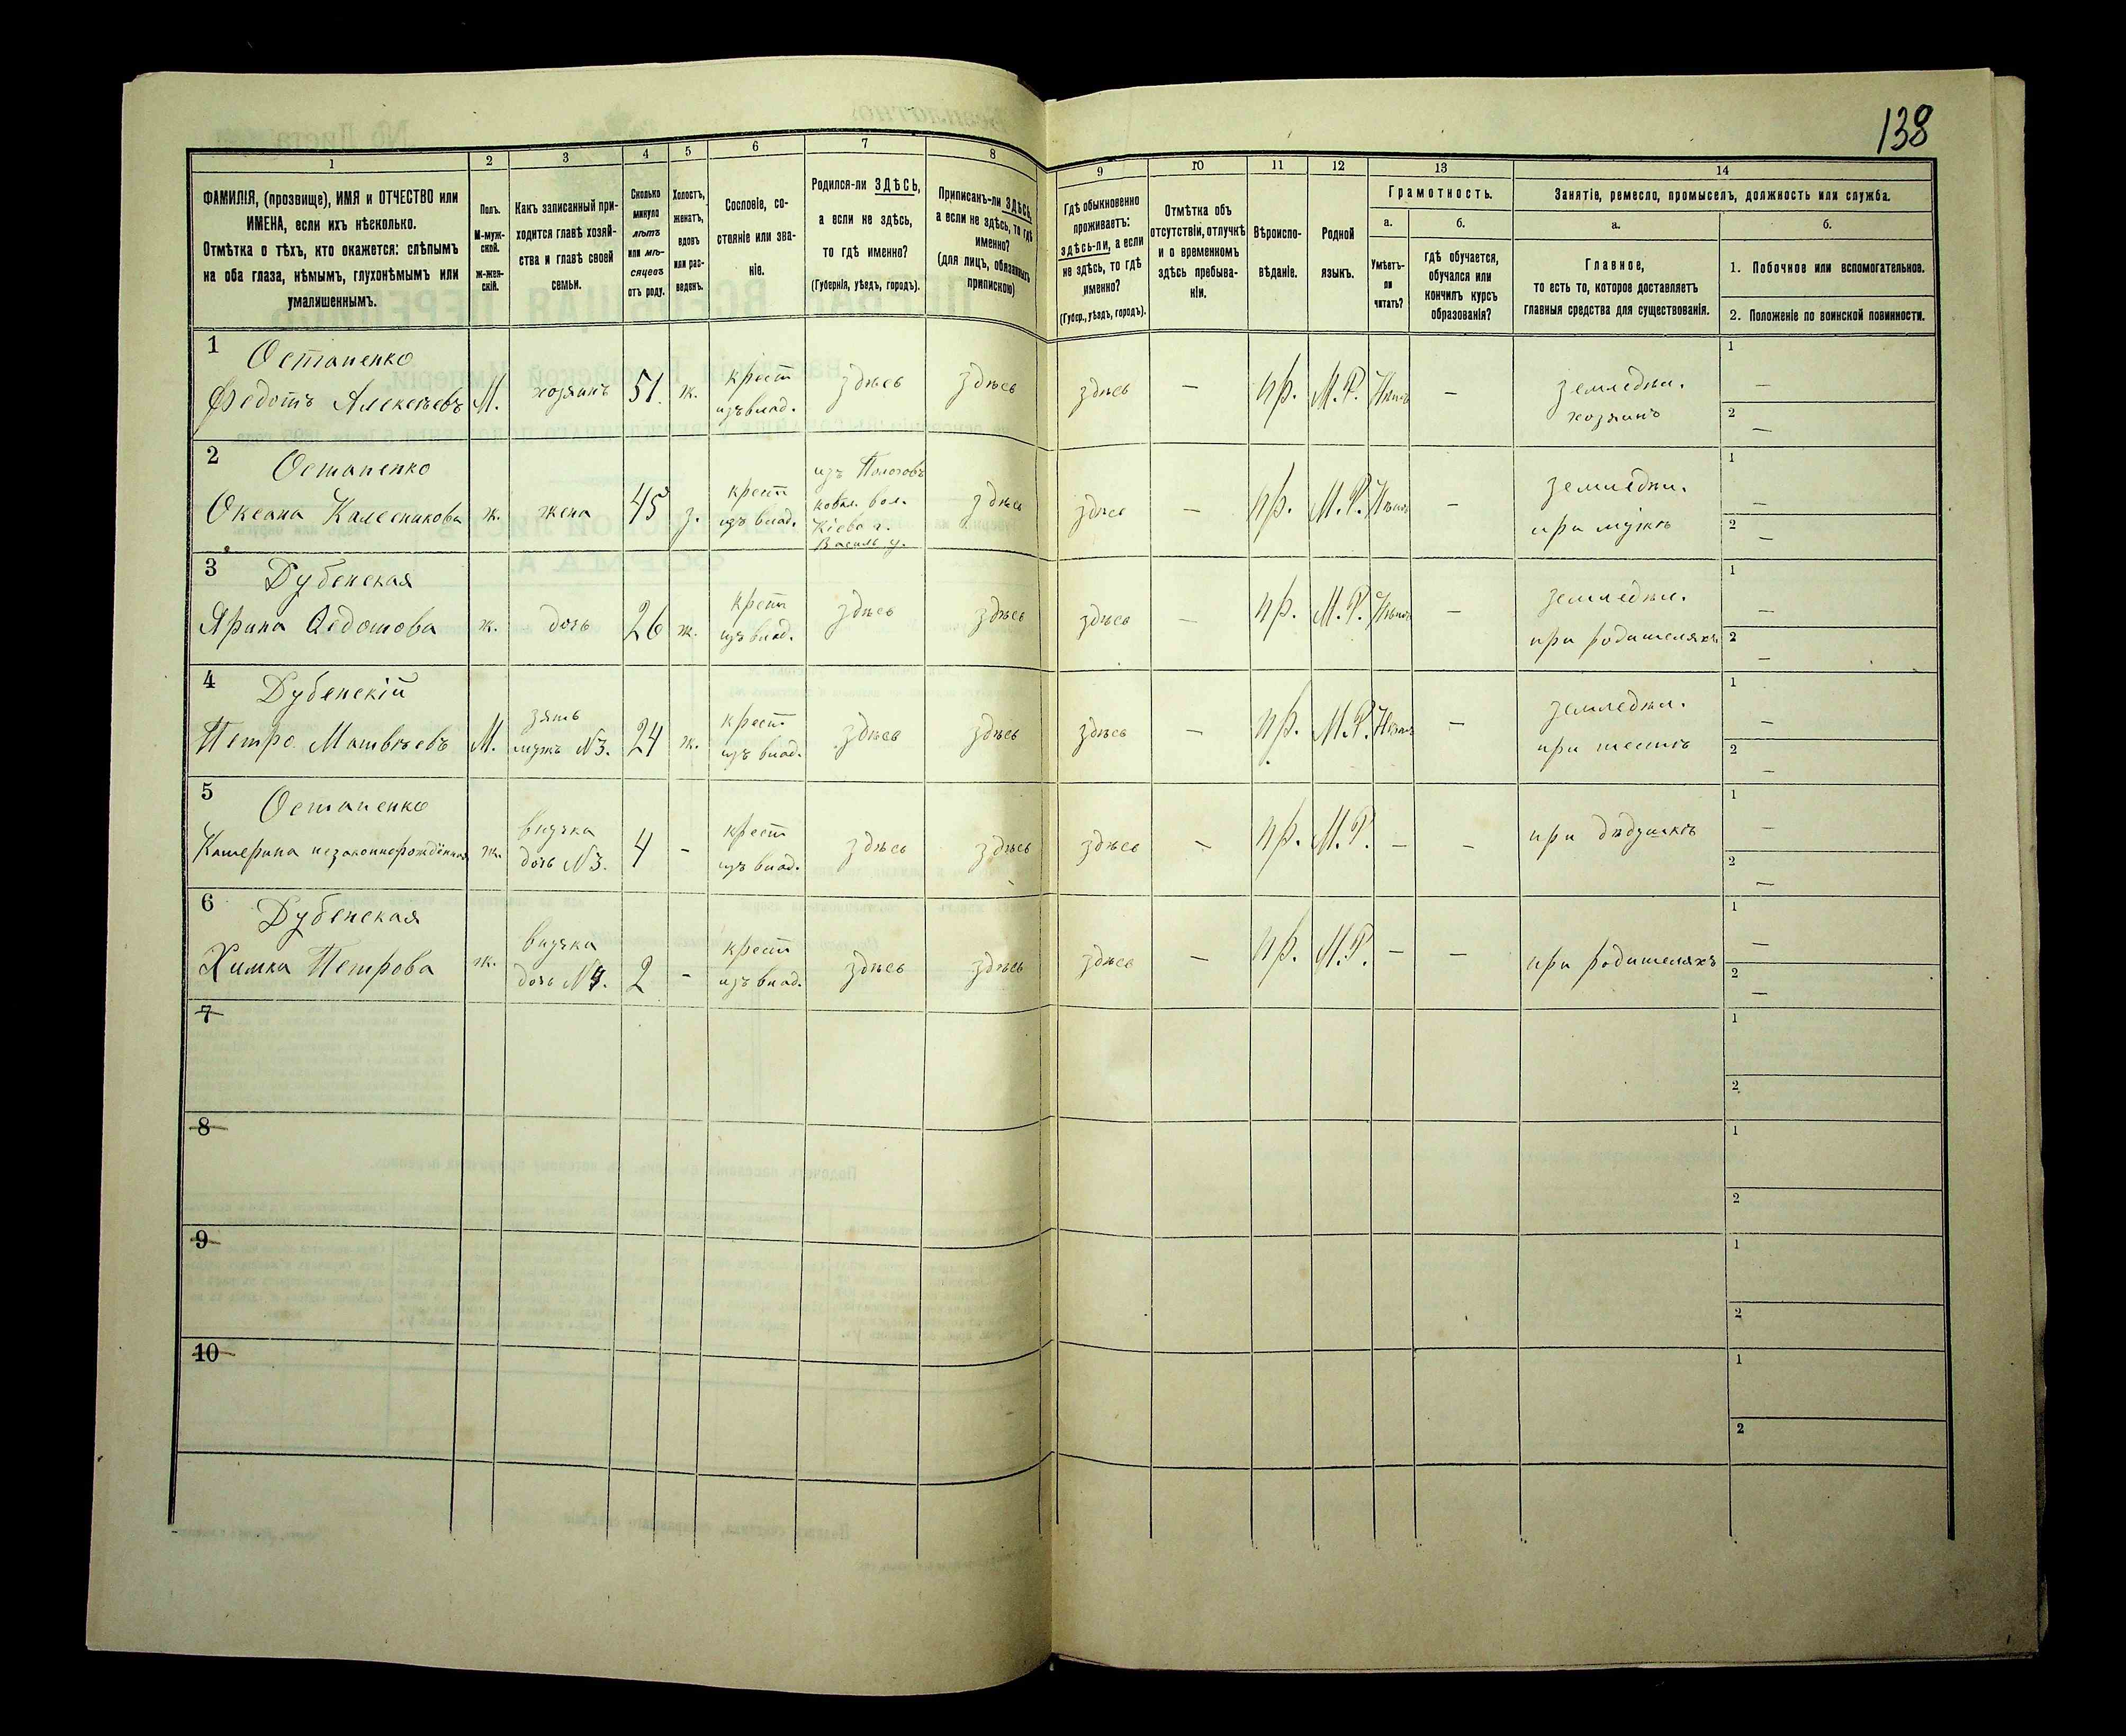 138
1
ФАМИЛІЯ, (прозвище), ИМЯ и ОТЧЕСТВО или
ИМЕНА, если ихъ нѣсколько.
Отмѣтка о тѣхъ, кто окажется: слѣпымъ
на оба глаза, нѣмымъ, глухонѣмымъ или
умалишеннымъ.
2
Полъ.
М-муж-
ской.
Ж-жен-
скій.
3
Какъ записанный при-
ходится главѣ хозяй-
ства и главѣ своей
семьи.
4
Сколько
минуло
лѣтъ
или мѣ-
сяцевъ
отъ роду.
5
Холостъ,
женатъ,
вдовъ
или раз-
веденъ.
6
Сословіе, со-
стояніе или зва-
ніе.
7
Родился-ли ЗДѢСЬ,
а если не здѣсь,
то гдѣ именно?
(Губернія, уѣздъ, городъ).
8
Приписанъ-ли ЗДѢСЬ,
а если не здѣсь, то гдѣ
именно?
(для лицъ, обязанныхъ
припискою)
9
Гдѣ обыкновенно
проживаетъ:
здѣсь-ли, а если
не здѣсь, то гдѣ
именно?
(Губер., уѣздъ, городъ).
10
Отмѣтка объ
отсутствіи, отлучкѣ
и о временномъ
здѣсь пребыва-
ніи.
11
Вѣроиспо-
вѣданіе.
12
Родной
языкъ.
13
Грамотность.
а.
Умѣетъ-
ли
читать?
б.
гдѣ обучается,
обучался или
кончилъ курсъ
образованія?
14
Занятіе, ремесло, промыселъ, должность или служба.
а.
Главное,
то есть то, которое доставляетъ
главныя средства для существованія.
б.
1. Побочное или вспомогательное.
2. Положеніе по воинской повинности.
1
Остапенко
Федотъ Алексѣевъ
М.
хозяинъ
51.
ж.
крест
изъ влад.
здѣсь
здѣсь
здѣсь
—
пр.
М.Р.
Нѣтъ
—
земледѣл.
хозяинъ
1
—
2
—
2
Остапенко
Оксана Калесникова
ж.
жена
45
з.
крест
изъ влад.
изъ
вол.
Кіевс г.
Василь у.
здѣсь
здѣсь
—
пр.
М.Р.
Нѣтъ
—
земледѣл.
при мужѣ
1
—
2
—
3
Дубенская
Ярина Федотова
ж.
дочь
26
ж.
крест
изъ влад.
здѣсь
здѣсь
здѣсь
—
пр.
М.Р.
Нѣтъ
—
земледѣл.
при родителяхъ
1
—
2
—
4
Дубенскій
Петро Матвѣевъ
М.
зять
мужъ №3.
24
ж.
крест
изъ влад.
здѣсь
здѣсь
здѣсь
—
пр.
М.Р.
Нѣтъ
—
земледѣл.
при тестѣ
1
—
2
—
5
Остапенко
Катерина незаконнорождённая
ж.
внучка
дочь №3.
4
-
крест
изъ влад.
здѣсь
здѣсь
здѣсь
—
пр.
М.Р.
—
—
при дѣдушкѣ
1
—
2
—
6
Дубенская
Химка Петрова
ж.
внучка
дочь №4.
2
-
крест
изъ влад.
здѣсь
здѣсь
здѣсь
—
пр.
М.Р.
—
—
при родителяхъ
1
—
2
—
7
1
2
8
1
2
9
1
2
10
1
2